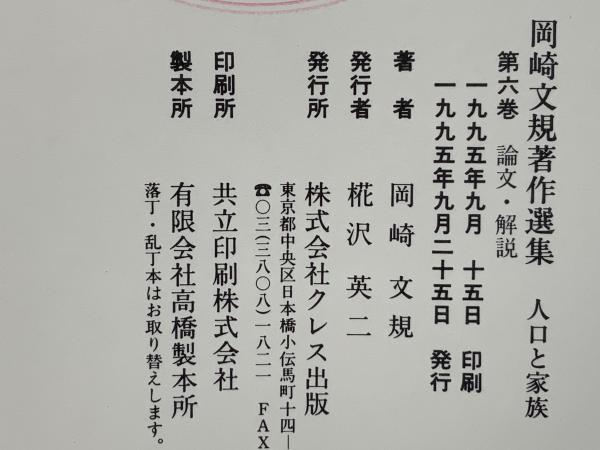 岡崎文規著作選集　人口と家族
第六巻　論文・解説
一九九五年九月　十五日　印刷
一九九五年九月二十五日　発行
著者　岡崎文規
発行者　椛沢英二
発行所　株式会社クレス出版
東京都中央区日本橋小伝馬町十四―
☎〇三(三八〇八)一八二一　FAX
印刷所　共立印刷株式会社
製本所　有限会社高橋製本所
落丁・乱丁本はお取り替えします。